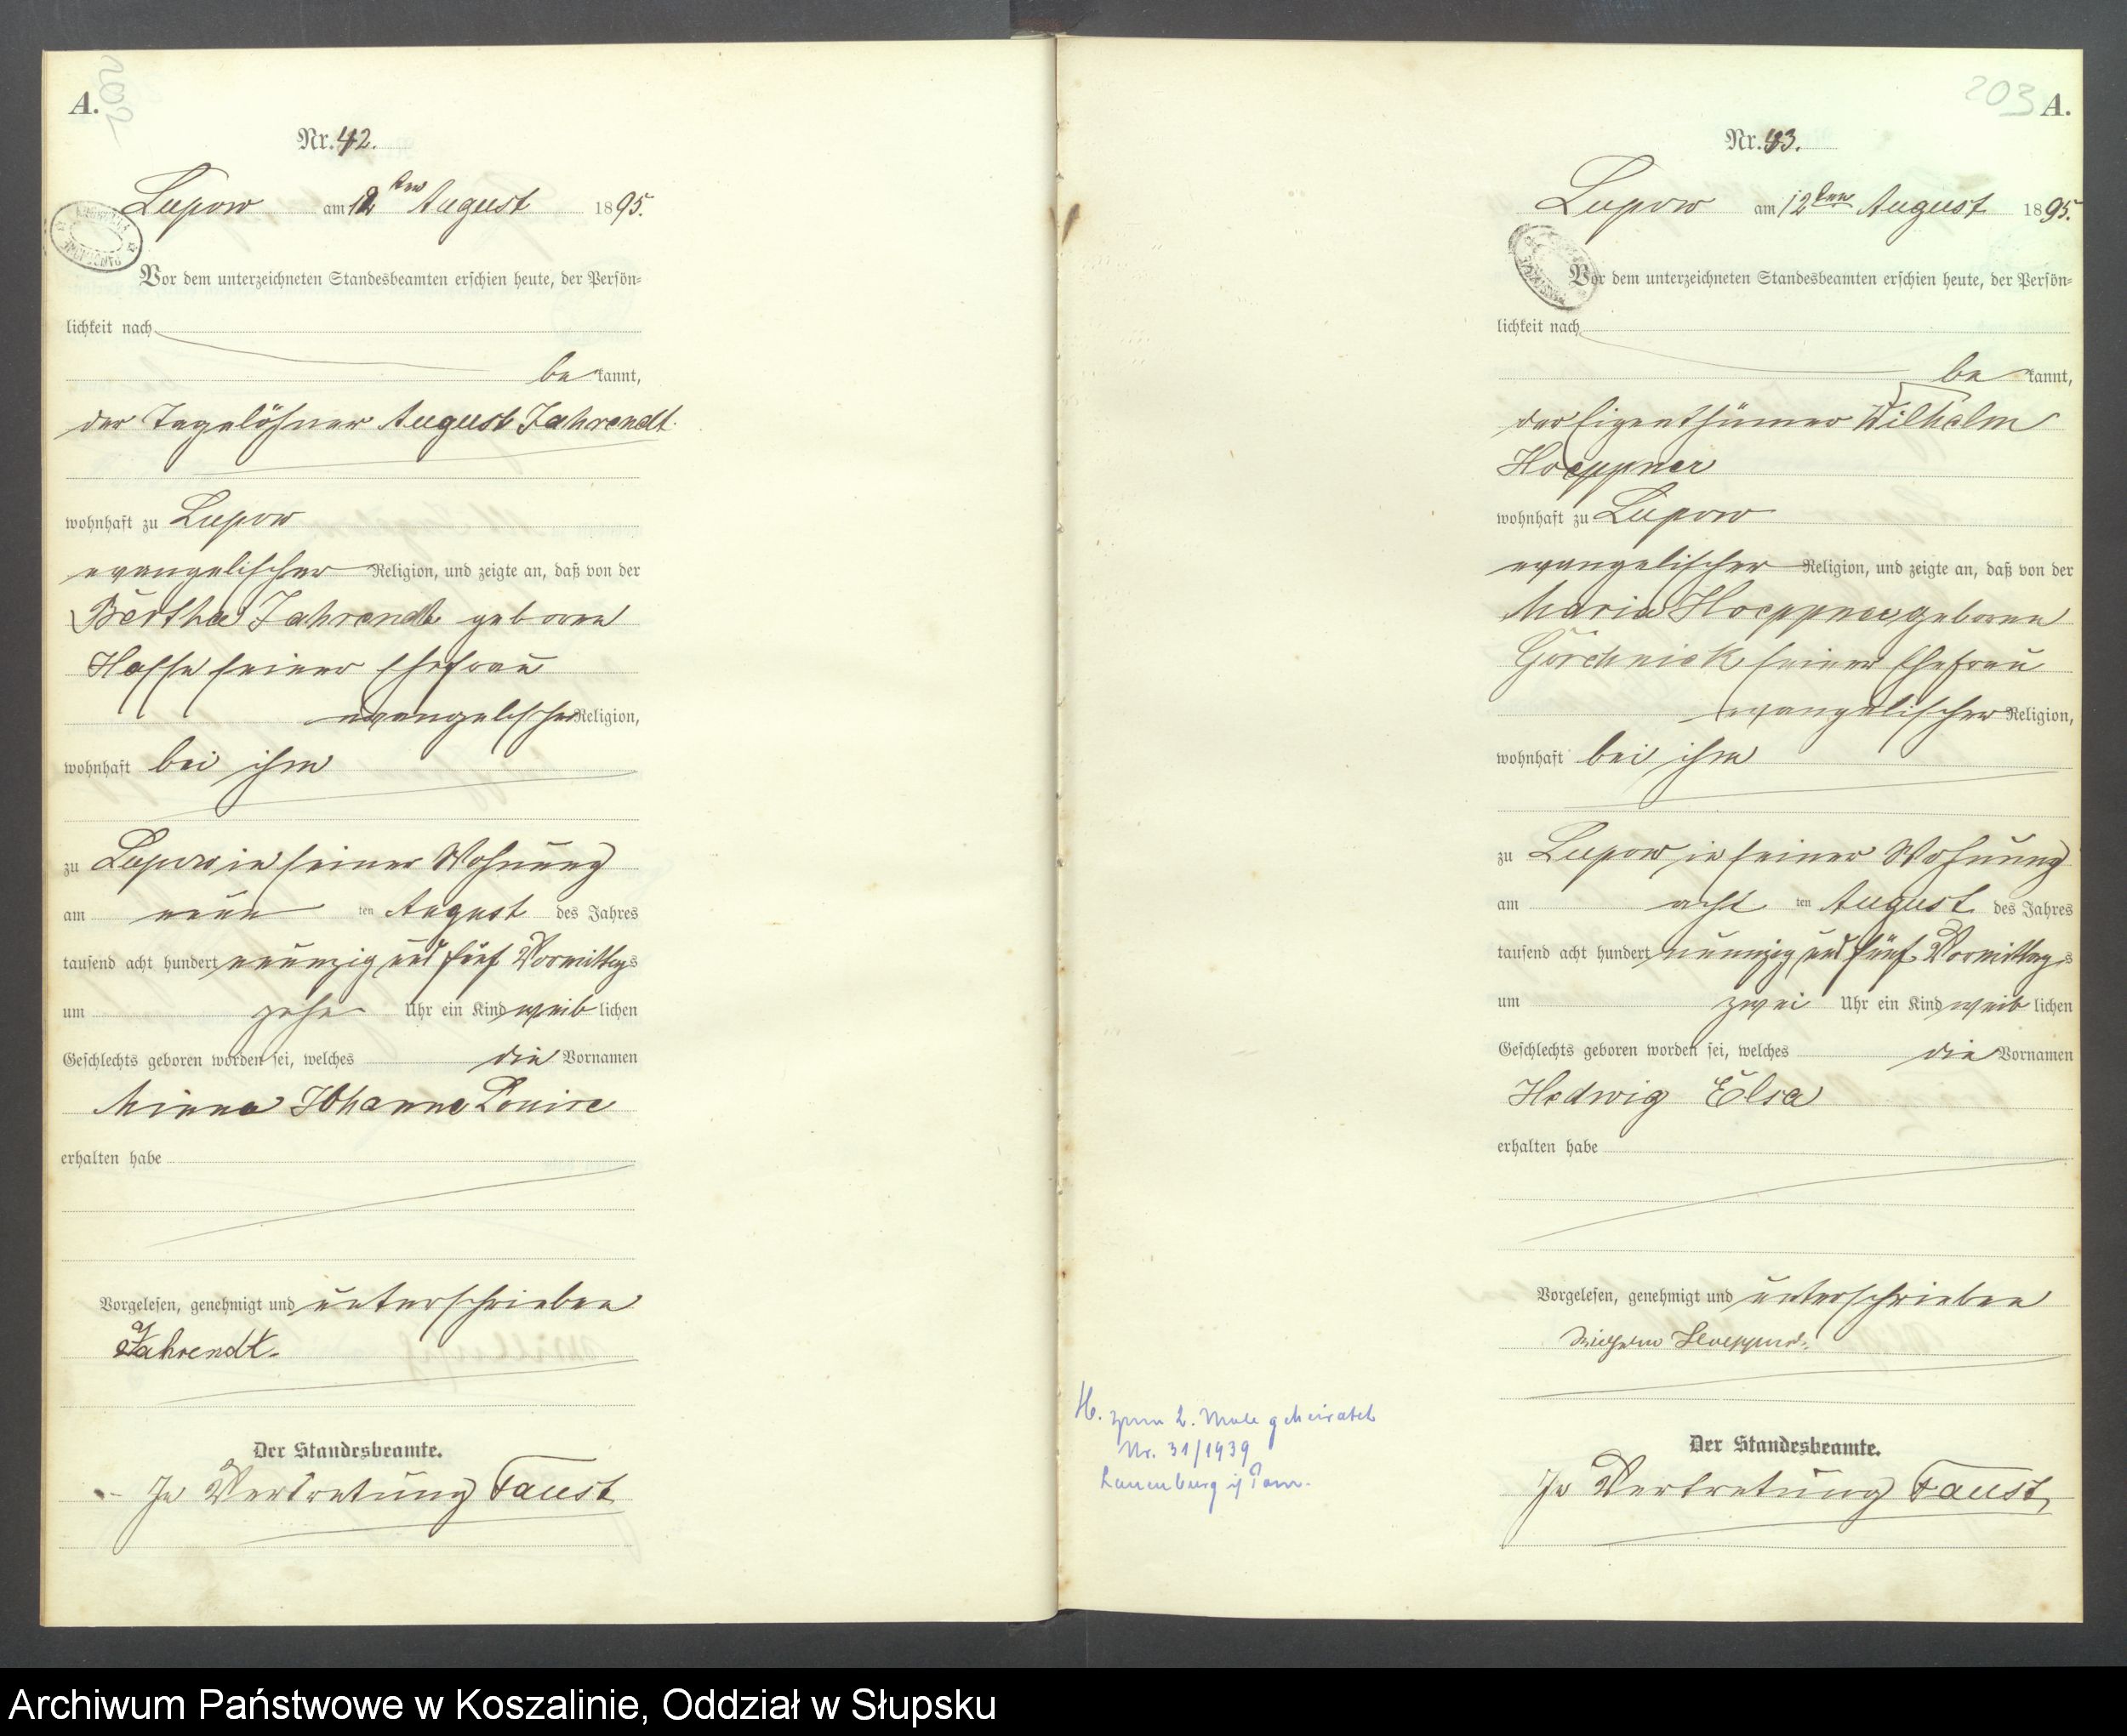 202
A.
Nr. 42.
Lupow am 12ten August 1895.
Vor dem unterzeichneten Standesbeamten erschien heute, der Persön-
lichkeit nach
bekannt,
der Tagelöhner August Jahrendt
wohnhaft zu Lupow
evangelischer Religion, und zeigte an, daß von der
Bertha Jahrendt geborene
Hasse seiner Ehefrau
evangelischer Religion,
wohnhaft bei ihm
zu Lupow in seiner Wohnung
am neunten August des Jahres
tausend acht hundert neunzig und fünf Vormittags
um zehn Uhr ein Kind weiblichen
Geschlechts geboren worden sei, welches die Vornamen
Minna Johanne Louise
erhalten habe
Vorgelesen, genehmigt und unterschrieben
Jahrendt.
Der Standesbeamte.
In Vertretung Faust
203
A.
Nr. 43.
Lupow am 12ten August 1895.
Vor dem unterzeichneten Standesbeamten erschien heute, der Persön-
lichkeit nach
bekannt,
der Eigenthümer Wilhelm
Hoeppner
wohnhaft zu Lupow
evangelischer Religion, und zeigte an, daß von der
Maria Hoeppner geborene
Görchnick seiner Ehefrau
evangelischer Religion,
wohnhaft bei ihm
zu Lupow in seiner Wohnung
am achtten August des Jahres
tausend acht hundert neunzig und fünf Vormittags
um zwei Uhr ein Kind weiblichen
Geschlechts geboren worden sei, welches die Vornamen
Hedwig Elsa
erhalten habe
Vorgelesen, genehmigt und unterschrieben
Wilhelm Hoeppner.
Der Standesbeamte.
In Vertretung Faust
H. zum 2. Male geheiratet
Nr. 31/1939
Lauenburg i/Pom.
Archiwum Państwowe w Koszalinie, Oddział w Słupsku